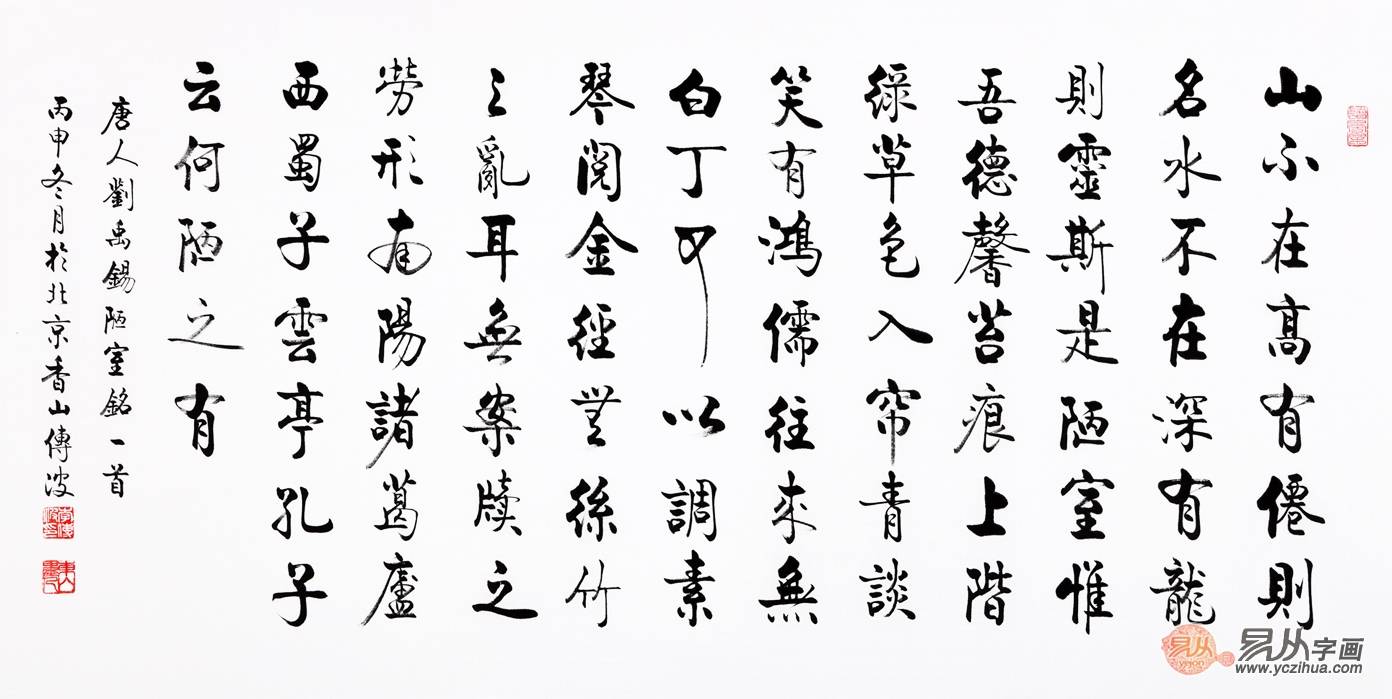 山不在高有僊則
名水不在深有龍
則靈斯是陋室惟
吾德馨苔痕上階
綠草色入帘青談
笑有鴻儒往來無
白丁可以調素
琴閱金經無絲竹
之亂耳無案牘之
勞形南陽諸葛廬
西蜀子雲亭孔子
云何陋之有
唐人劉禹錫陋室銘一首
丙申冬月於北京香山傳波
易从字画
www.yczihua.com